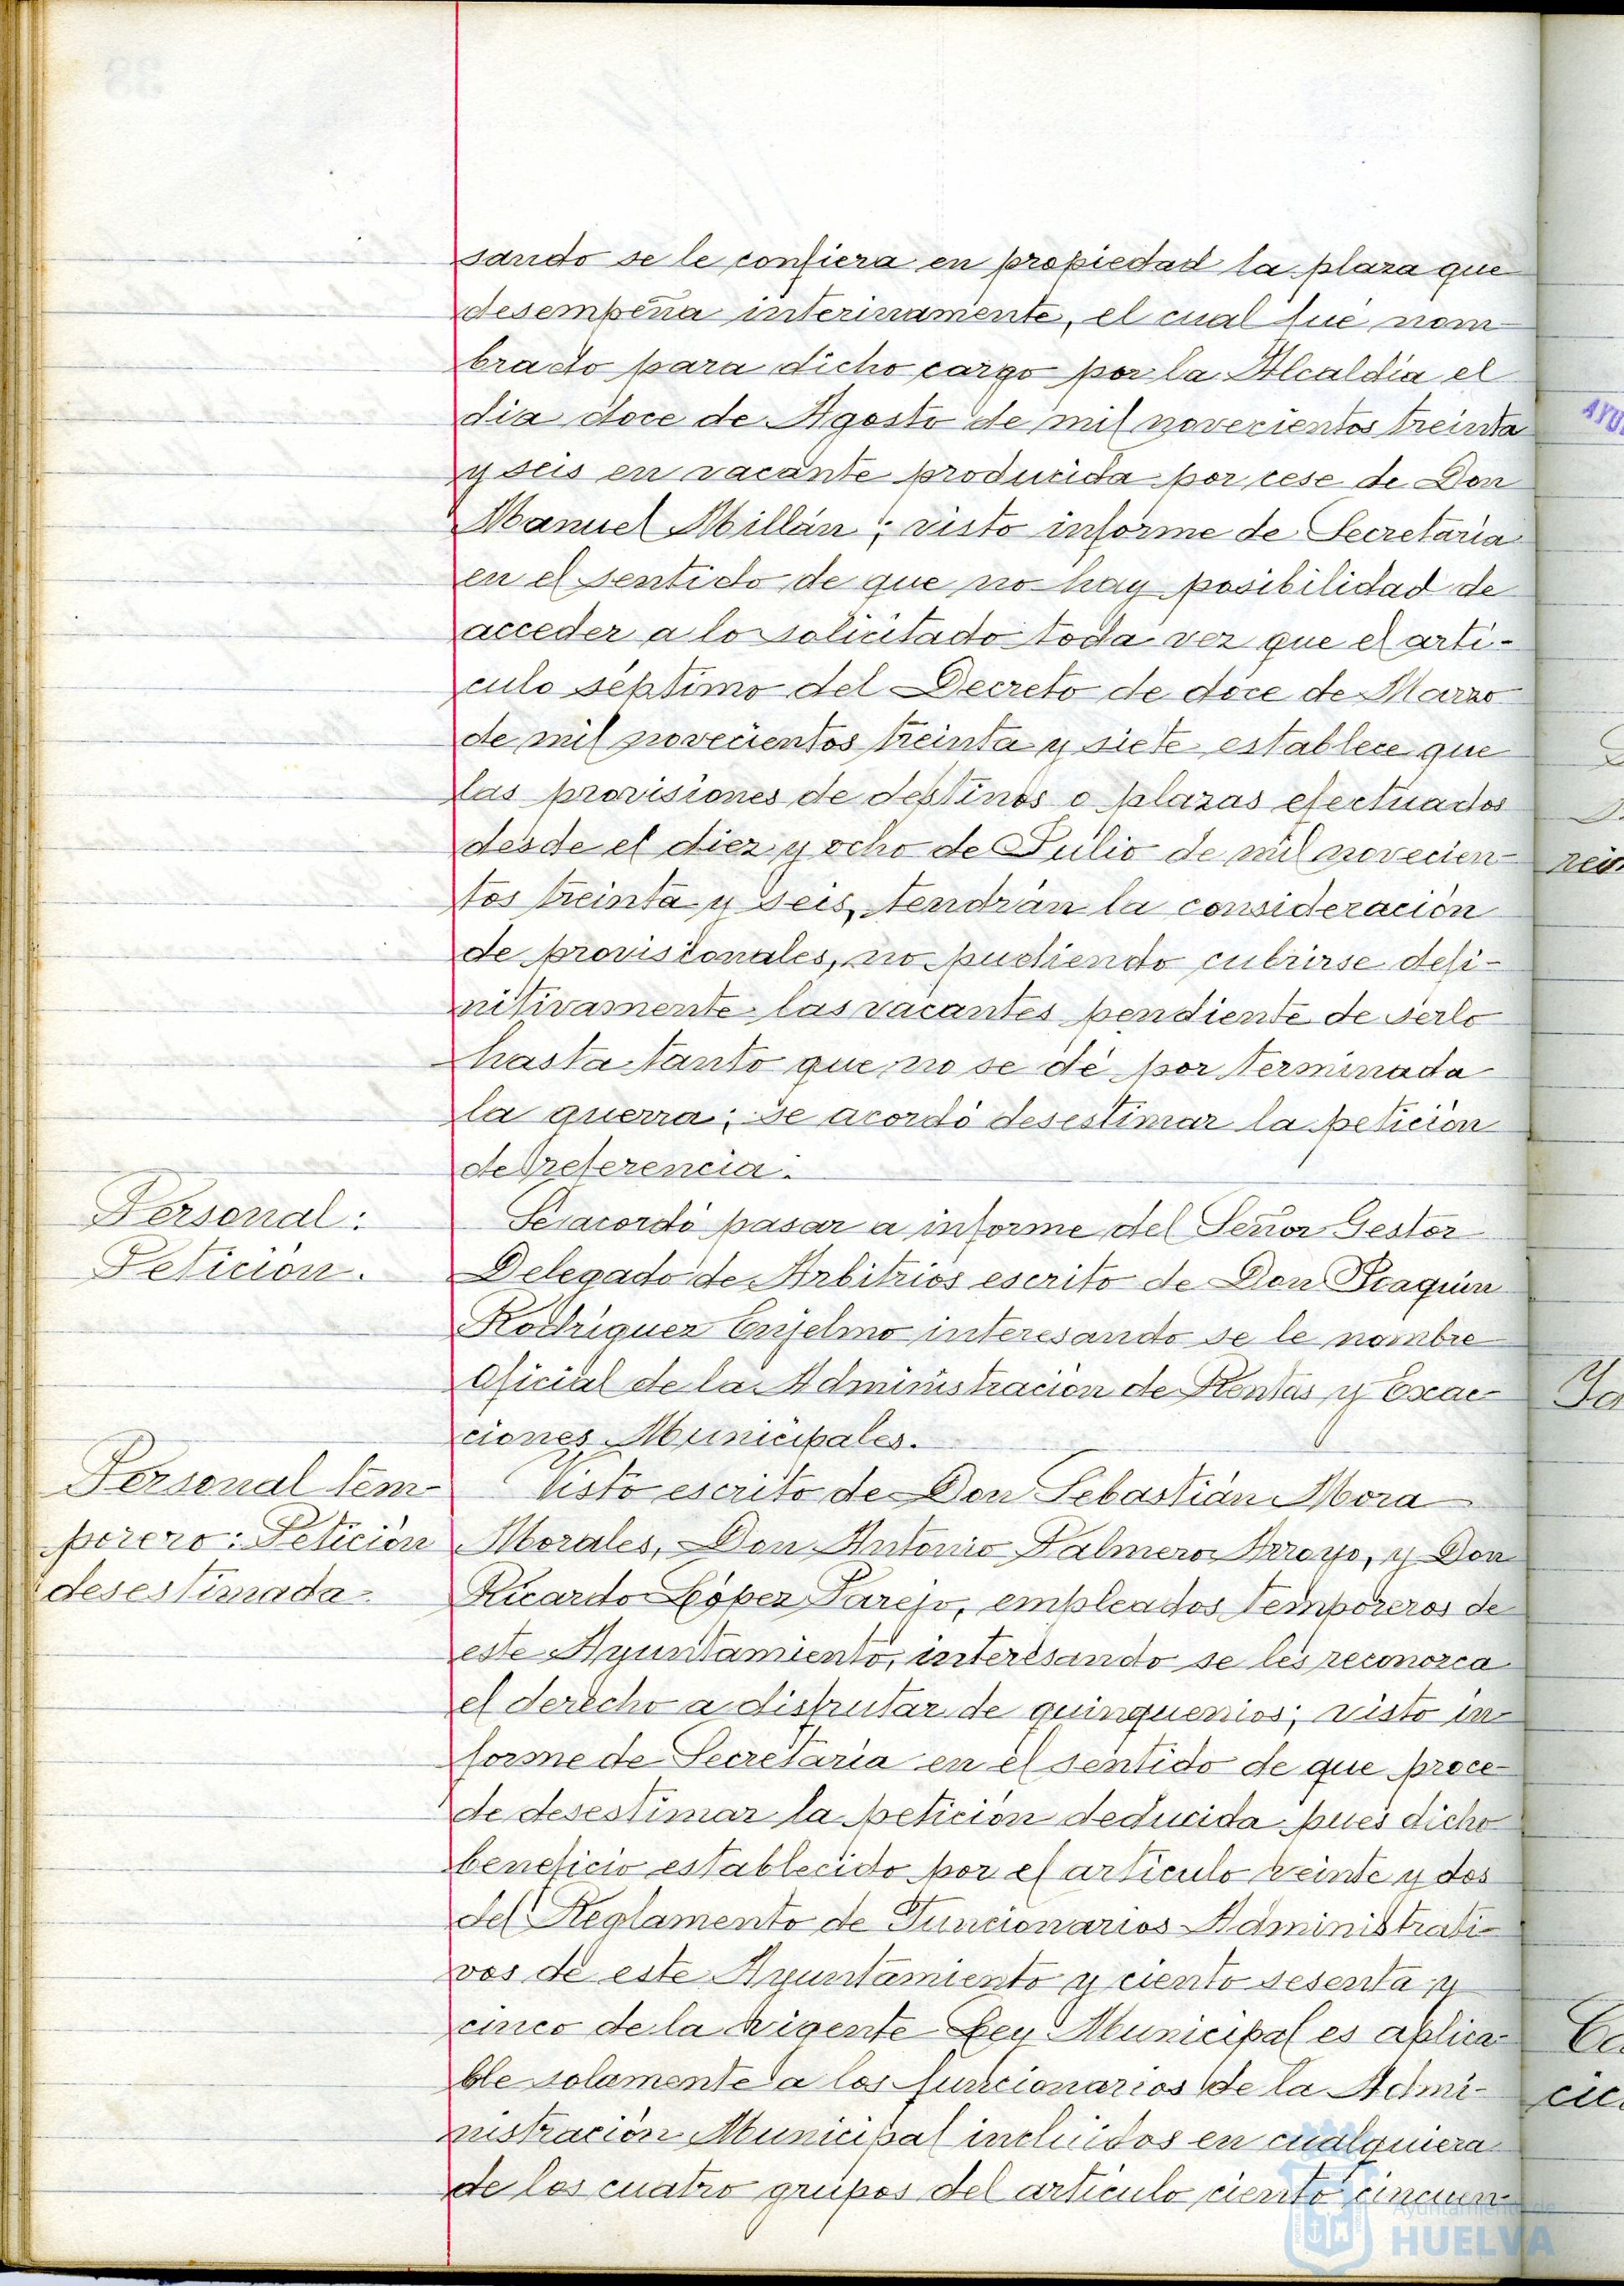 sando se le confiera en propiedad la plaza que
desempeña interinamente, el cual fué nom-
brado para dicho cargo por la Alcaldía el
dia doce de Agosto de mil novecientos treinta
y seis en vacante producida por cese de Don
Manuel Millán; visto informe de Secretaría
en el sentido de que no hay posibilidad de
acceder a lo solicitado toda vez que el arti-
culo séptimo del Decreto de doce de Marzo
de mil novecientos treinta y siete establece que
las provisiones de destinos o plazas efectuados
desde el diez y ocho de Julio de mil novecien-
tos treinta y seis, tendrán la consideración
de provisionales, no pudiendo cubrirse defi-
nitivamente las vacantes pendiente de serlo
hasta tanto que no se dé por terminada
la guerra; se acordó desestimar la petición
de referencia.
Personal:
Petición.
Se acordó pasar a informe del Señor Gestor
Delegado de Arbitrios escrito de Don Joaquín
Rodríguez Enjelmo interesando se le nombre
Oficial de la Administración de Rentas y Exac-
ciones Municipales.
Personal tem-
porero: Petición
desestimada.
Visto escrito de Don Sebastián Mora
Morales, Don Antonio Palmero Arroyo, y Don
Ricardo López Parejo, empleados temporeros de
este Ayuntamiento, interesando se les reconozca
el derecho a disfrutar de quinquenios; visto in-
forme de Secretaría en el sentido de que proce-
de desestimar la petición deducida pues dicho
beneficio establecido por el artículo veinte y dos
del Reglamento de Funcionarios Administrati-
vos de este Ayuntamiento y ciento sesenta y
cinco de la vigente Ley Municipal es aplica-
ble solamente a los funcionarios de la Admi-
nistración Municipal incluidos en cualquiera
de los cuatro grupos del artículo ciento cincuen-
Ayuntamiento de
HUELVA